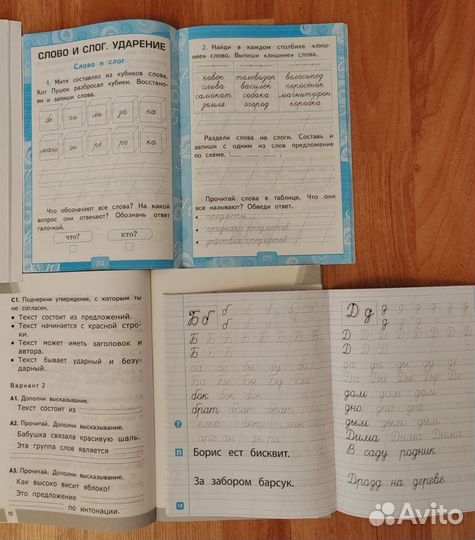 СЛОВО И СЛОГ. УДАРЕНИЕ
Слово и слог
1. Митя составлял из кубиков слова,
Кот Пушок разбросал кубики. Восстано-
ви и запиши слова.
бе пи ли за па
маш эн ре ро ка
Что обозначают все слова? На какой
вопрос они отвечают? Обозначь ответ
галочкой.
что? кто?
24
2. Найди в каждом столбике «лиш-
нее» слово. Выпиши «лишние» слова.
ковёр телевизор велосипед
слива василёк поросёнок
самокат собака магнитофон
земля огород коробка
Раздели слова на слоги. Составь и
запиши с одним из слов предложение
по схеме.
Прочитай слова в таблице. Что они
все называют? Обведи ответ.
• предметы
• признаки предметов
• действия предметов
25
С1. Подчеркни утверждение, с которым ты
не согласен.
• Текст состоит из предложений.
• Текст начинается с красной стро-
ки.
• Текст может иметь заголовок и
автора.
• Текст бывает ударный и безу-
дарный.
Вариант 2
А1. Дополни высказывание.
Текст состоит из
А2. Прочитай. Дополни высказывание.
Бабушка связала красивую шаль.
Эта группа слов является
А3. Прочитай. Дополни высказывание.
Как высоко висит яблоко!
Это предложение
по интонации.
10
Б б б б
Б Б
Б Б
ба бе бы бу би
Ба Бе Бы Бу Би
бок бок бок
брат брат брат
?
П
Борис ест бисквит.
За забором барсук.
Д д д д
Д Д
Д Д
да ди ды ду де
Да Ди Ды Ду Де
дом дом дом
дно дно дно
дым дым дым
Дима Дима Дима
В саду родник.
Дрозд на дереве.
Avito